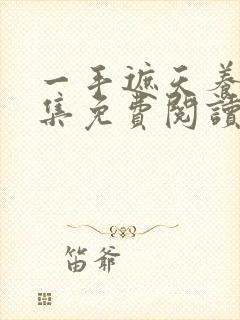 一手遮天养
集免費閱讀
笛爷